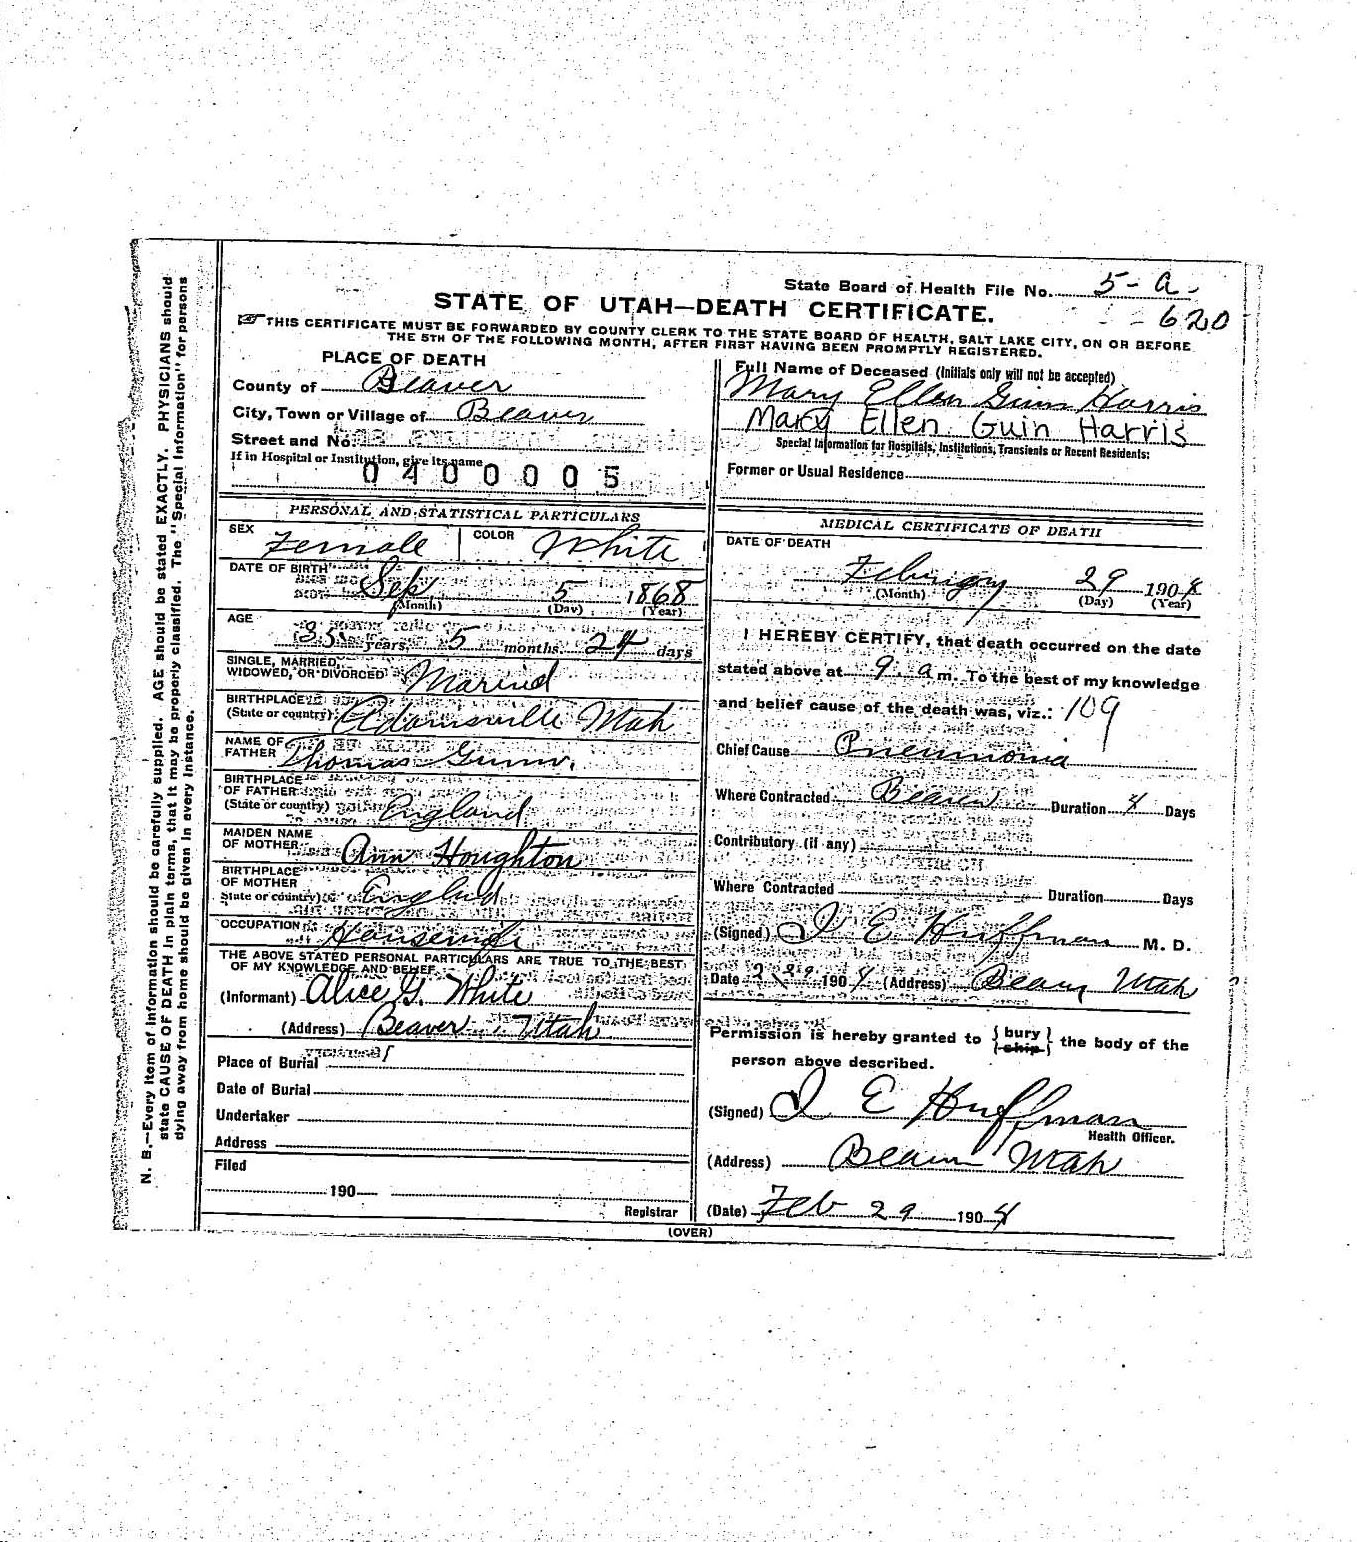 State Board of Health File No. 5-a-
- 620
STATE OF UTAH—DEATH CERTIFICATE.
THIS CERTIFICATE MUST BE FORWARDED BY COUNTY CLERK TO THE STATE BOARD OF HEALTH, SALT LAKE CITY, ON OR BEFORE
THE 5TH OF THE FOLLOWING MONTH, AFTER FIRST HAVING BEEN PROMPTLY REGISTERED.
PLACE OF DEATH
County of Beaver
City, Town or Village of Beaver
Street and No.
If in Hospital or Institution, give its name
0400005
Full Name of Deceased (Initials only will not be accepted)
Mary Ellen Guin Harris
Mary Ellen Guin Harris
Special Information for Hospitals, Institutions, Transients or Recent Residents:
Former or Usual Residence
PERSONAL AND STATISTICAL PARTICULARS
SEX Female COLOR White
DATE OF BIRTH
Sep 5 1868
(Month) (Day) (Year)
AGE
35 years, 5 months, 24 days
SINGLE, MARRIED,
WIDOWED, OR DIVORCED Married
BIRTHPLACE
(State or country) Adamsville Utah
NAME OF
FATHER Thomas Gunn.
BIRTHPLACE
OF FATHER
(State or country) England
MAIDEN NAME
OF MOTHER Ann Houghton
BIRTHPLACE
OF MOTHER
State or country) England
OCCUPATION Housewife
THE ABOVE STATED PERSONAL PARTICULARS ARE TRUE TO THE BEST
OF MY KNOWLEDGE AND BELIEF
(Informant) Alice G. White
(Address) Beaver, Utah
Place of Burial
Date of Burial
Undertaker
Address
Filed
190
Registrar
MEDICAL CERTIFICATE OF DEATH
DATE OF DEATH
February 29 1904
(Month) (Day) (Year)
I HEREBY CERTIFY, that death occurred on the date
stated above at 9 a m. To the best of my knowledge
and belief cause of the death was, viz.: 109
Chief Cause Pneumonia
Where Contracted Beaver Duration Days
Contributory (if any)
Where Contracted Duration Days
(Signed) I E Huffman M. D.
Date 2 29 1904 (Address) Beaver Utah
Permission is hereby granted to { bury } { ship } the body of the
person above described.
(Signed) I E Huffman
Health Officer.
(Address) Beaver Utah
(Date) Feb 29 1904
(OVER)
N. B.—Every item of information should be carefully supplied. AGE should be stated EXACTLY. PHYSICIANS should
state CAUSE OF DEATH in plain terms, that it may be properly classified. The "Special Information" for persons
dying away from home should be given in every instance.